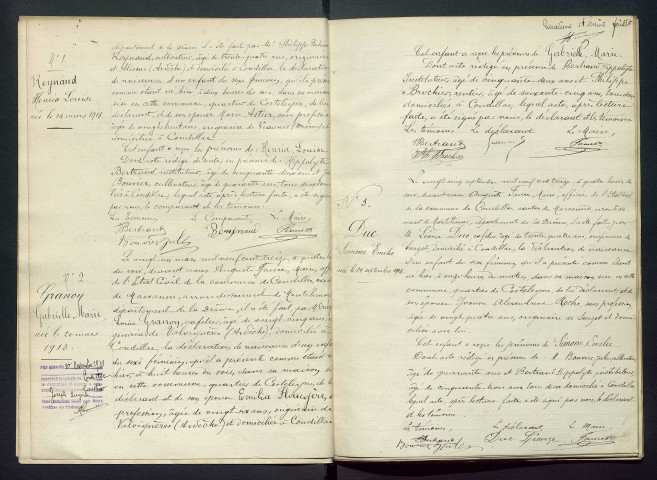 N° 1
Reynaud
Henria Louise
née le 14 mars 1913.
département de la Drôme, il a été fait par Mr Philippe
Reynaud, cultivateur, âgé de trente quatre ans, originaire
(Ardèche) et domicilié à Condillac, la déclaration
de naissance d'un enfant du sexe féminin, qu'il a présenté
comme étant né hier, à deux heures du soir, dans sa maison
sise en cette commune, quartier de Costelogne, de lui
déclarant, et de son épouse Maria Astier, sans profession
âgée de vingt huit ans, originaire de
domiciliée à Condillac.
Cet enfant a reçu les prénoms de Henria Louise.
Dont acte rédigé de suite, en présence de Hippolyte
Bertrand, instituteur, âgé de cinquante deux ans et
Bouvier, cultivateur, âgé de quarante ans, tous deux domici-
liés à Condillac, lequel acte, après lecture faite, a été signé
par nous, le comparant et les témoins.
Les témoins, Le Comparant, Le Maire,
Bertrand
Bouvier Jules
N° 2
Granon
Gabrielle Marie
née le 20 mars
1913.
Le vingt un mars mil neuf cent treize, à quatre heures
du soir, devant nous Auguste Faure, Maire, officier
de l'Etat Civil de la commune de Condillac, canton
de Marsanne, arrondissement de Montélimar
département de la Drôme, il a été fait par M.
Louis Granon, cafetier, âgé de vingt cinq ans, ori-
ginaire de Valvignères (Ardèche), domicilié à
Condillac, la déclaration de naissance d'un enfant
du sexe féminin, qu'il a présenté comme étant né
hier, à huit heures du soir, dans sa maison sise
en cette commune, quartier de Costelogne, de lui
déclarant et de son épouse Emilia
profession, âgée de vingt six ans, originaire de
Valvignères (Ardèche) et domiciliée à Condillac
Cet enfant a reçu les prénoms de Gabrielle Marie.
Dont acte rédigé en présence de Bertrand Hippolyte
Instituteur, âgé de cinquante deux ans et Philippe
Brochier, rentier, âgé de soixante cinq ans, tous deux
domiciliés à Condillac, lequel acte, après lecture
faite, a été signé par nous, le déclarant et les témoins.
Les témoins, Le déclarant, Le Maire,
Bertrand
Ph. Brochier
N° 3.
Duc
Simone Emilie
née le 29 septembre 1913
Le vingt neuf septembre mil neuf cent treize, à quatre heures du
soir, devant nous Auguste Faure, Maire, officier de l'Etat Civil
de la commune de Condillac, canton de Marsanne, arrondisse-
ment de Montélimar, département de la Drôme, a été faite par
M. Léonze Duc, cafetier, âgé de trente quatre ans, originaire de
Sauzet, domicilié à Condillac, la déclaration de naissance
d'un enfant du sexe féminin, qu'il a présenté comme étant
né hier, à onze heures du matin, dans sa maison sise en cette
commune, quartier de Costelogne, de lui déclarant et de
son épouse Yvonne Roche, sans profession,
âgée de vingt quatre ans, originaire de Sauzet et domi-
ciliée avec lui.
Cet enfant a reçu le prénom de Simone Emilie.
Dont acte rédigé en présence de M. Bouvier Jules, cultivateur,
âgé de quarante ans et Bertrand Hippolyte, instituteur,
âgé de cinquante trois ans, tous deux domiciliés à Condillac
lequel acte, après lecture faite, a été signé par nous, le déclarant
et les témoins.
Les témoins, Le déclarant, Le Maire,
Bertrand Duc Léonze
Bouvier Jules